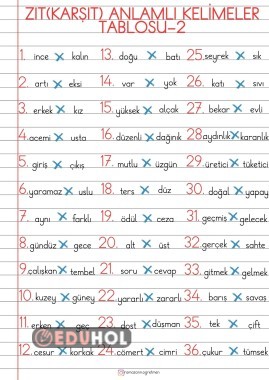 ZIT(KARŞIT) ANLAMLI KELİMELER
TABLOSU-2
1. ince x kalın
2. artı x eksi
3. erkek x kız
4. acemi x usta
5. giriş x çıkış
6. yaramaz x uslu
7. aynı x farklı
8. gündüz x gece
9. çalışkan x tembel
10. kuzey x güney
11. erken x geç
12. cesur x korkak
13. doğu x batı
14. var x yok
15. yüksek x alçak
16. düzenli x dağınık
17. mutlu x üzgün
18. ters x düz
19. ödül x ceza
20. alt x üst
21. soru x cevap
22. yararlı x zararlı
23. dost x düşman
24. cömert x cimri
25. seyrek x sık
26. katı x sıvı
27. bekar x evli
28. aydınlık x karanlık
29. üretici x tüketici
30. doğal x yapay
31. geçmiş x gelecek
32. gerçek x sahte
33. gitmek x gelmek
34. barış x savaş
35. tek x çift
36. çukur x tümsek
EDUHOL